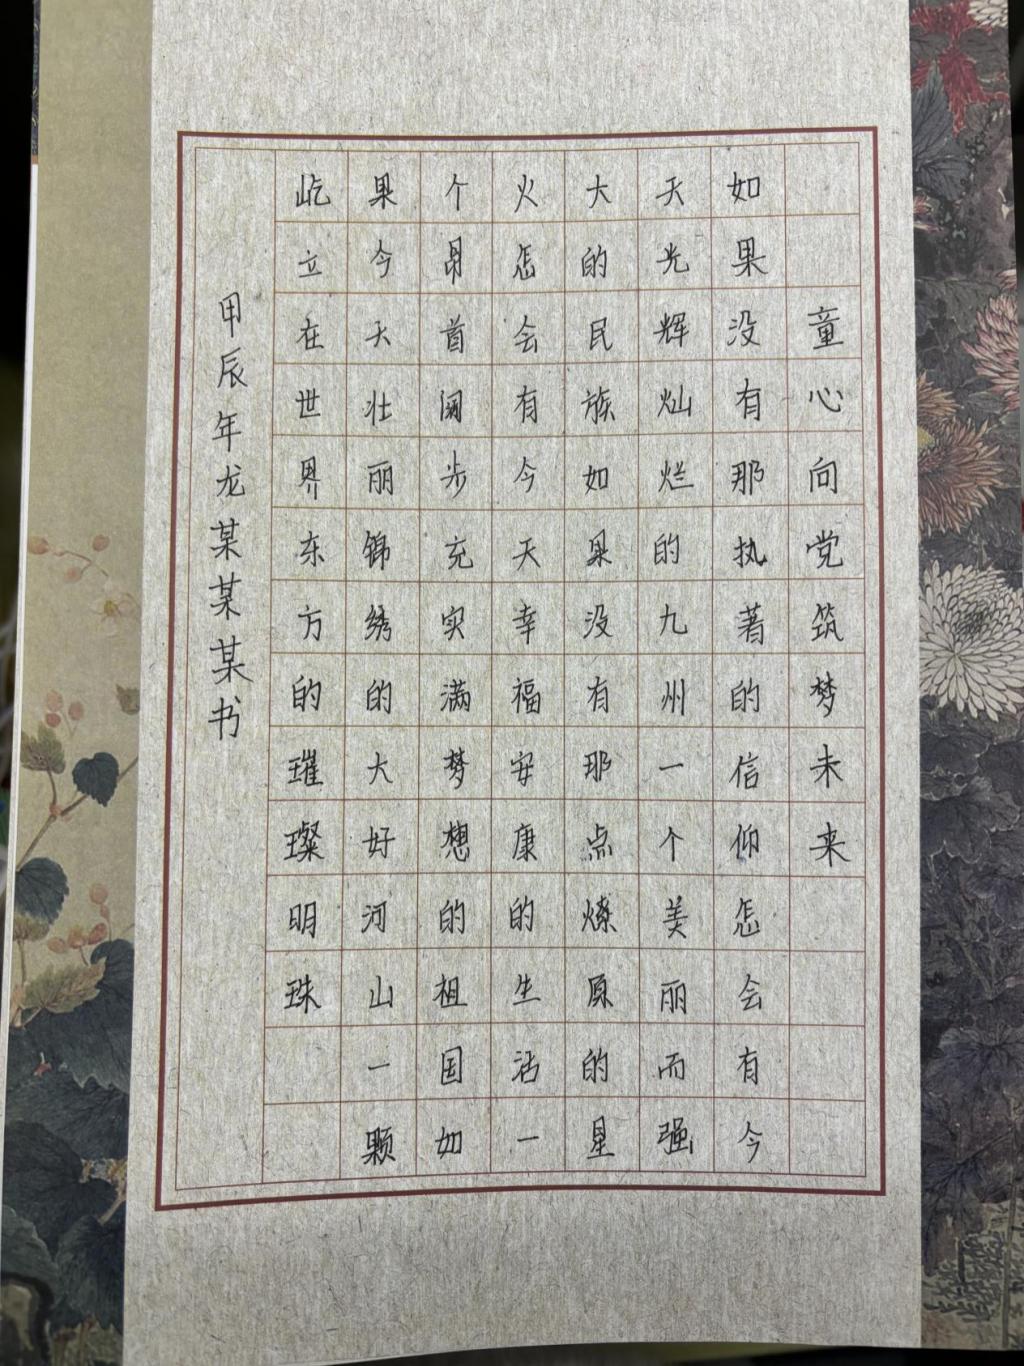 童心向党筑梦未来
如果没有那执著的信仰怎会有今
天光辉灿烂的九州一个美丽而强
大的民族如果没有那点燎原的星
火怎会有今天幸福安康的生活一
个昂首阔步充实满梦想的祖国如
果今天壮丽锦绣的大好河山一颗
屹立在世界东方的璀璨明珠
甲辰年龙某某某书